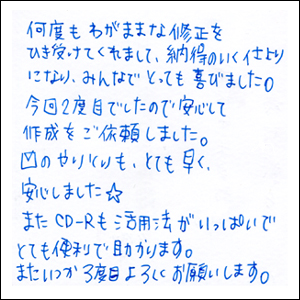 何度もわがままな修正を
ひき受けてくれまして、納得のいく仕上り
になり、みんなでとっても喜びました。
今回2度目でしたので安心して
作成をご依頼しました。
図のやりとりも、とても早く、
安心しました☆
またCD-Rも活用法がいっぱいで
とても便利で助かります。
またいつか3度目よろしくお願いします。